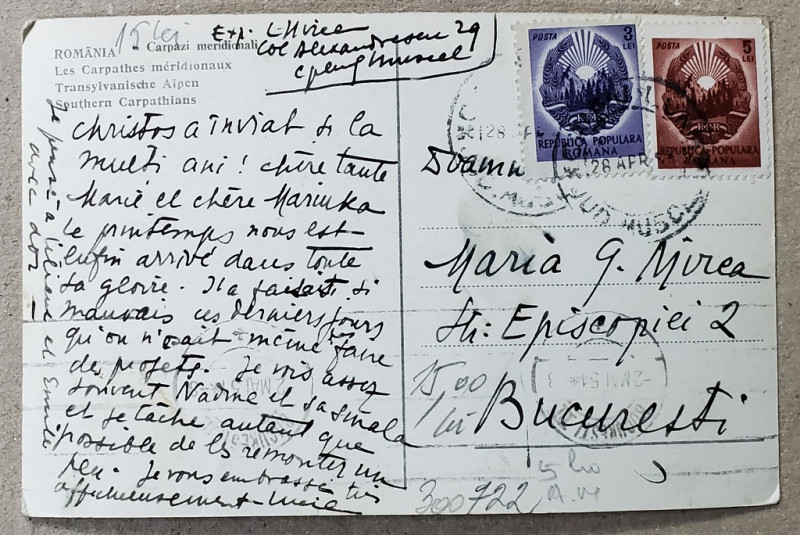 ROMÂNIA
Carpazi meridionali
Les Carpathes méridionaux
Transylvanische Alpen
Southern Carpathians
15 lei
Exp. L Mircea
Col Alexandrescu 29
Cplung Muscel
Christos a înviat si la
multi ani! Chère tante
Marie et chère Mariuka
le printemps nous est
enfin arrivé dans toute
sa gloire. Il a faisait si
mauvais ces derniers jours
qu'on n'osait même faire
des projets. Je vois assez
souvent Nadine et sa smala
et je tâche autant que
possible de les remonter un
peu. Je vous embrasse très
affectueusement - Lucia
Je pense à Liliane et
avec dor
POSTA
3
LEI
REPUBLICA POPULARA
ROMANA
POSTA
5
LEI
RPR
REPUBLICA POPULARA
ROMANA
28 APR
Doamn
Maria G. Mircea
Str: Episcopiei 2
Bucuresti
15,00
lei
2 MAI 51
300722